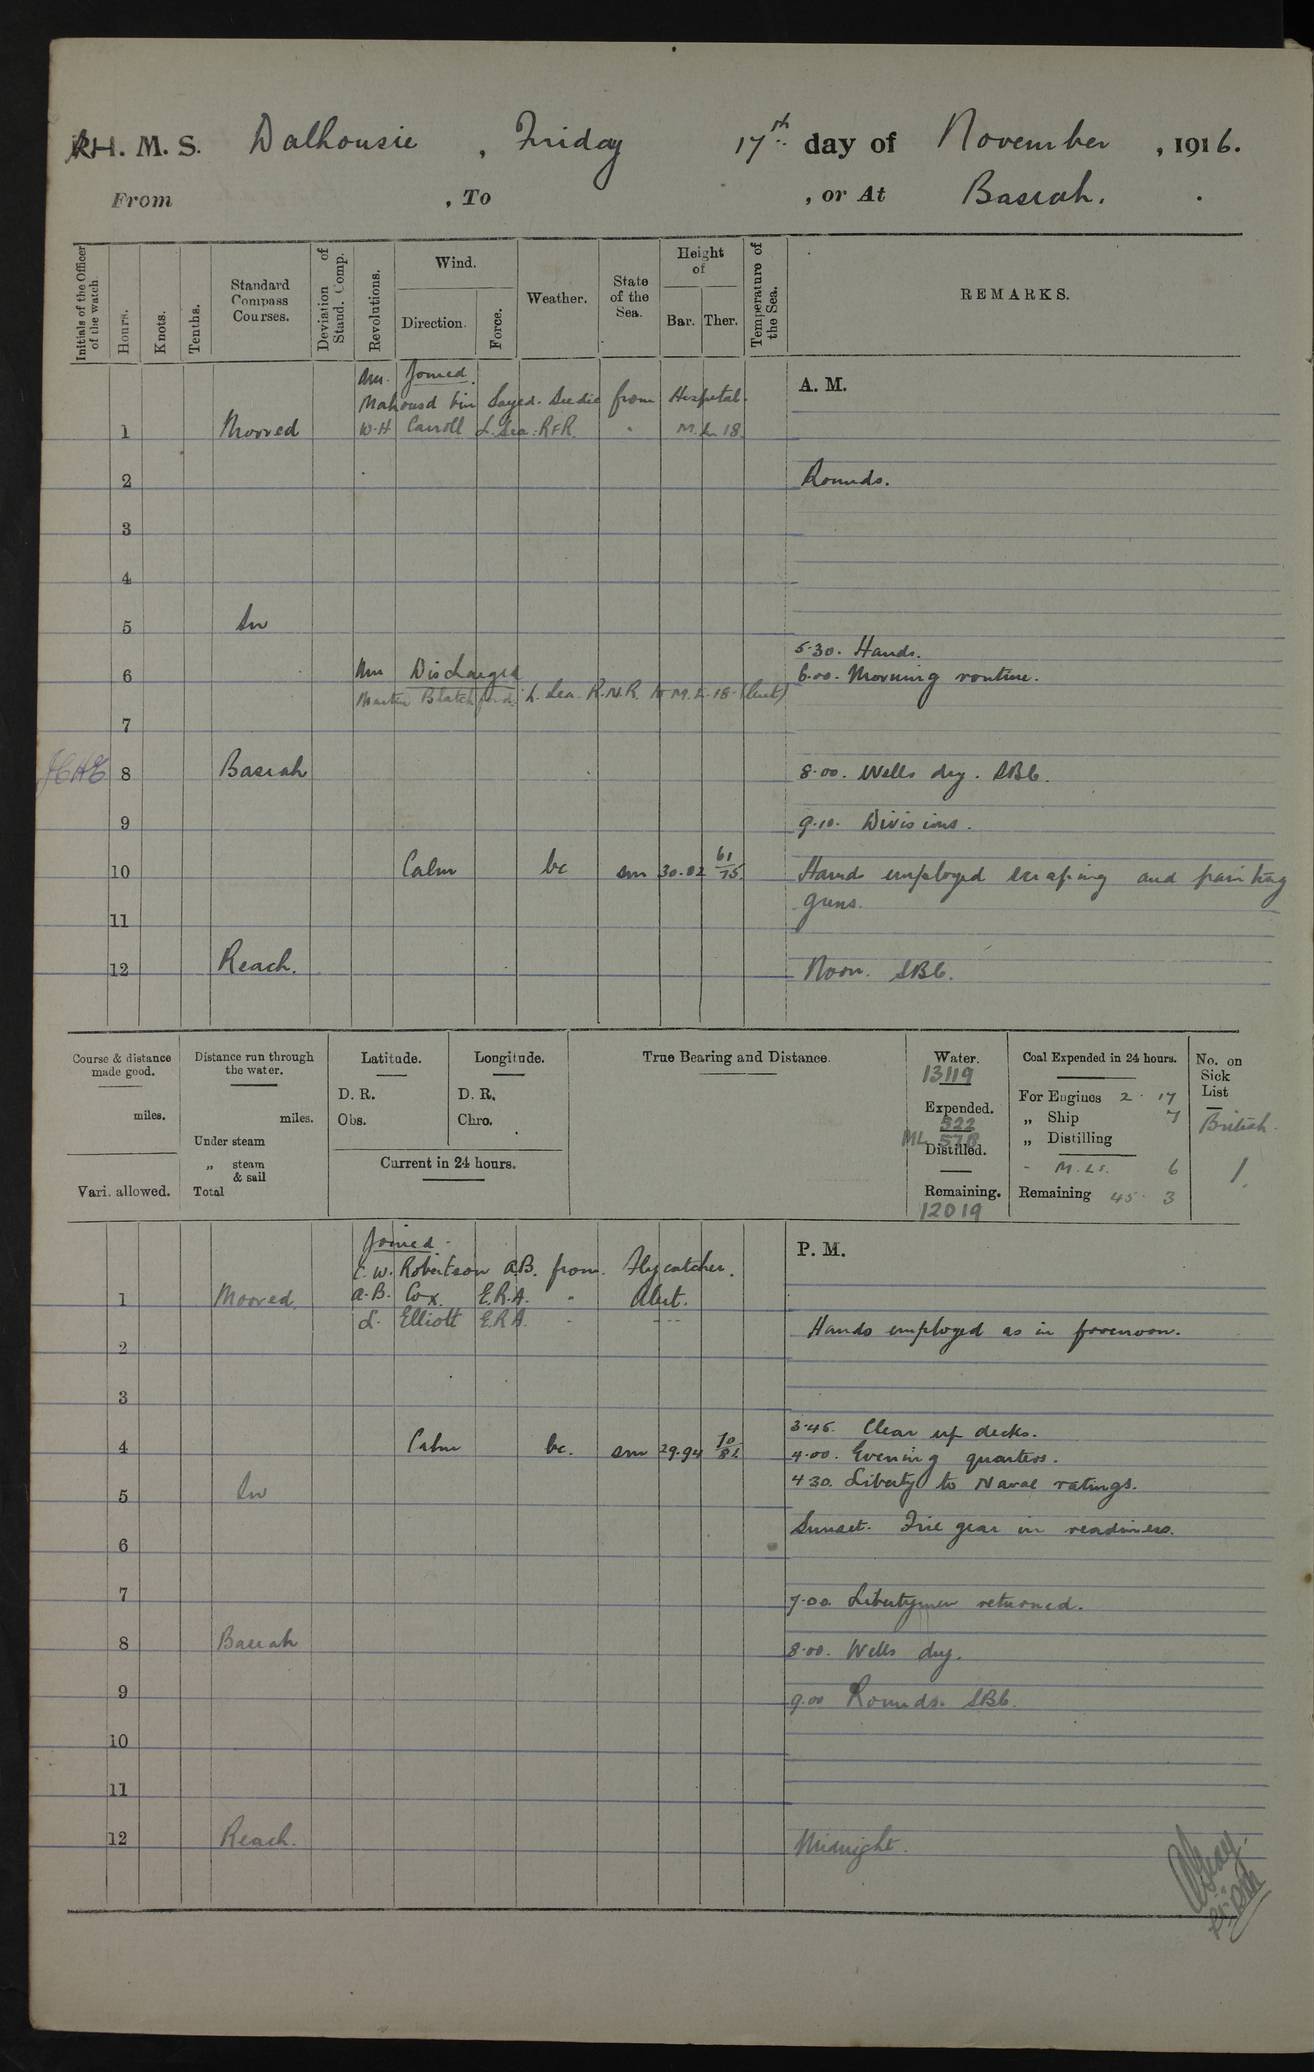 H. M. S. Dalhousie , Friday 17th day of November , 1916.
From , To , or At Basrah.
Initials of the Officer of the watch.
Hours.
Knots.
Tenths.
Standard Compass Courses.
Deviation of Stand. Comp.
Revolutions.
Wind.
Direction.
Force.
Weather.
State of the Sea.
Height of
Bar. Ther.
Temperature of the Sea.
REMARKS.
Joined.
A. M.
Sayed. Seedie from Hospital.
1 Moored W.H Carroll L. Sea. RFR. " M.L. 18.
2 Rounds.
3
4
5 In
5.30. Hands.
6 Discharged 6.00. Morning routine.
L. Sea. R.N.R. to M.L. 18.
7
8 Basrah 8.00. Wells dry. SBC.
9 9.10. Divisions.
10 Calm bc sm 30.02 61/75 Hands employed scraping and painting
guns.
11
12 Reach. Noon. SBC.
Course & distance made good.
miles.
Vari. allowed.
Distance run through the water.
miles.
Under steam
„ steam & sail
Total
Latitude.
D. R.
Obs.
Longitude.
D. R.
Chro.
Current in 24 hours.
True Bearing and Distance.
Water.
13119
Expended.
522
ML 578
Distilled.
Remaining.
12019
Coal Expended in 24 hours.
For Engines 2 . 17
„ Ship 7
„ Distilling
- M. Ls. 6
Remaining 45 . 3
No. on Sick List
British.
1.
Joined -
P. M.
E. W. Robertson A.B. from Flycatcher.
1 Moored. A. B. Cox. E.R.A. " Alert.
L. Elliott E.R.A. " ---
Hands employed as in forenoon.
2
3
3.45. Clear up decks.
4 Calm bc. sm 29.94 70/82 4.00. Evening quarters.
4 30. Liberty to Naval ratings.
5 In
Sunset. Fire gear in readiness.
6
7 7.00 Libertymen returned.
8 Basrah 8.00. Wells dry.
9 9.00 Rounds. SBC.
10
11
12 Reach. Midnight.